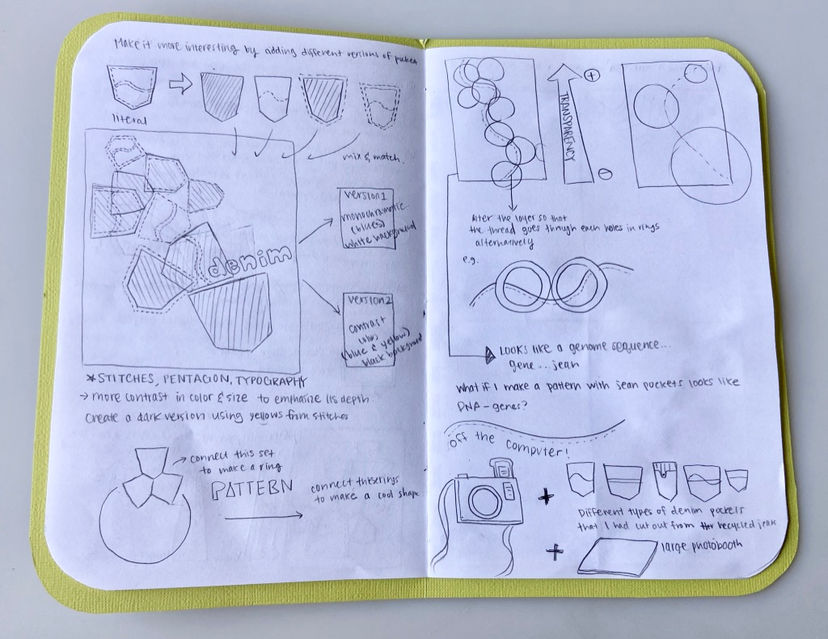 Make it more interesting by adding different versions of pocket
literal
mix & match.
denim
version1
monochromatic
(blues)
white background
version2
contrast
(blue & yellow)
black background
*STITCHES, PENTAGON, TYPOGRAPHY
→ more contrast in color & size to emphasize its depth
Create a dark version using yellows from stitches
connect this set
to make a ring
PATTERN
connect these rings
to make a cool shape
TRANSPARENCY
+
−
Alter the layer so that
the thread goes through each holes in rings
alternatively
e.g.
LOOKS like a genome sequence...
gene...jean
What if I make a pattern with jean pockets looks like
DNA-genes?
off the computer!
+
Different types of denim pockets
that I had cut out from the recycled jeans
+
large photobooth